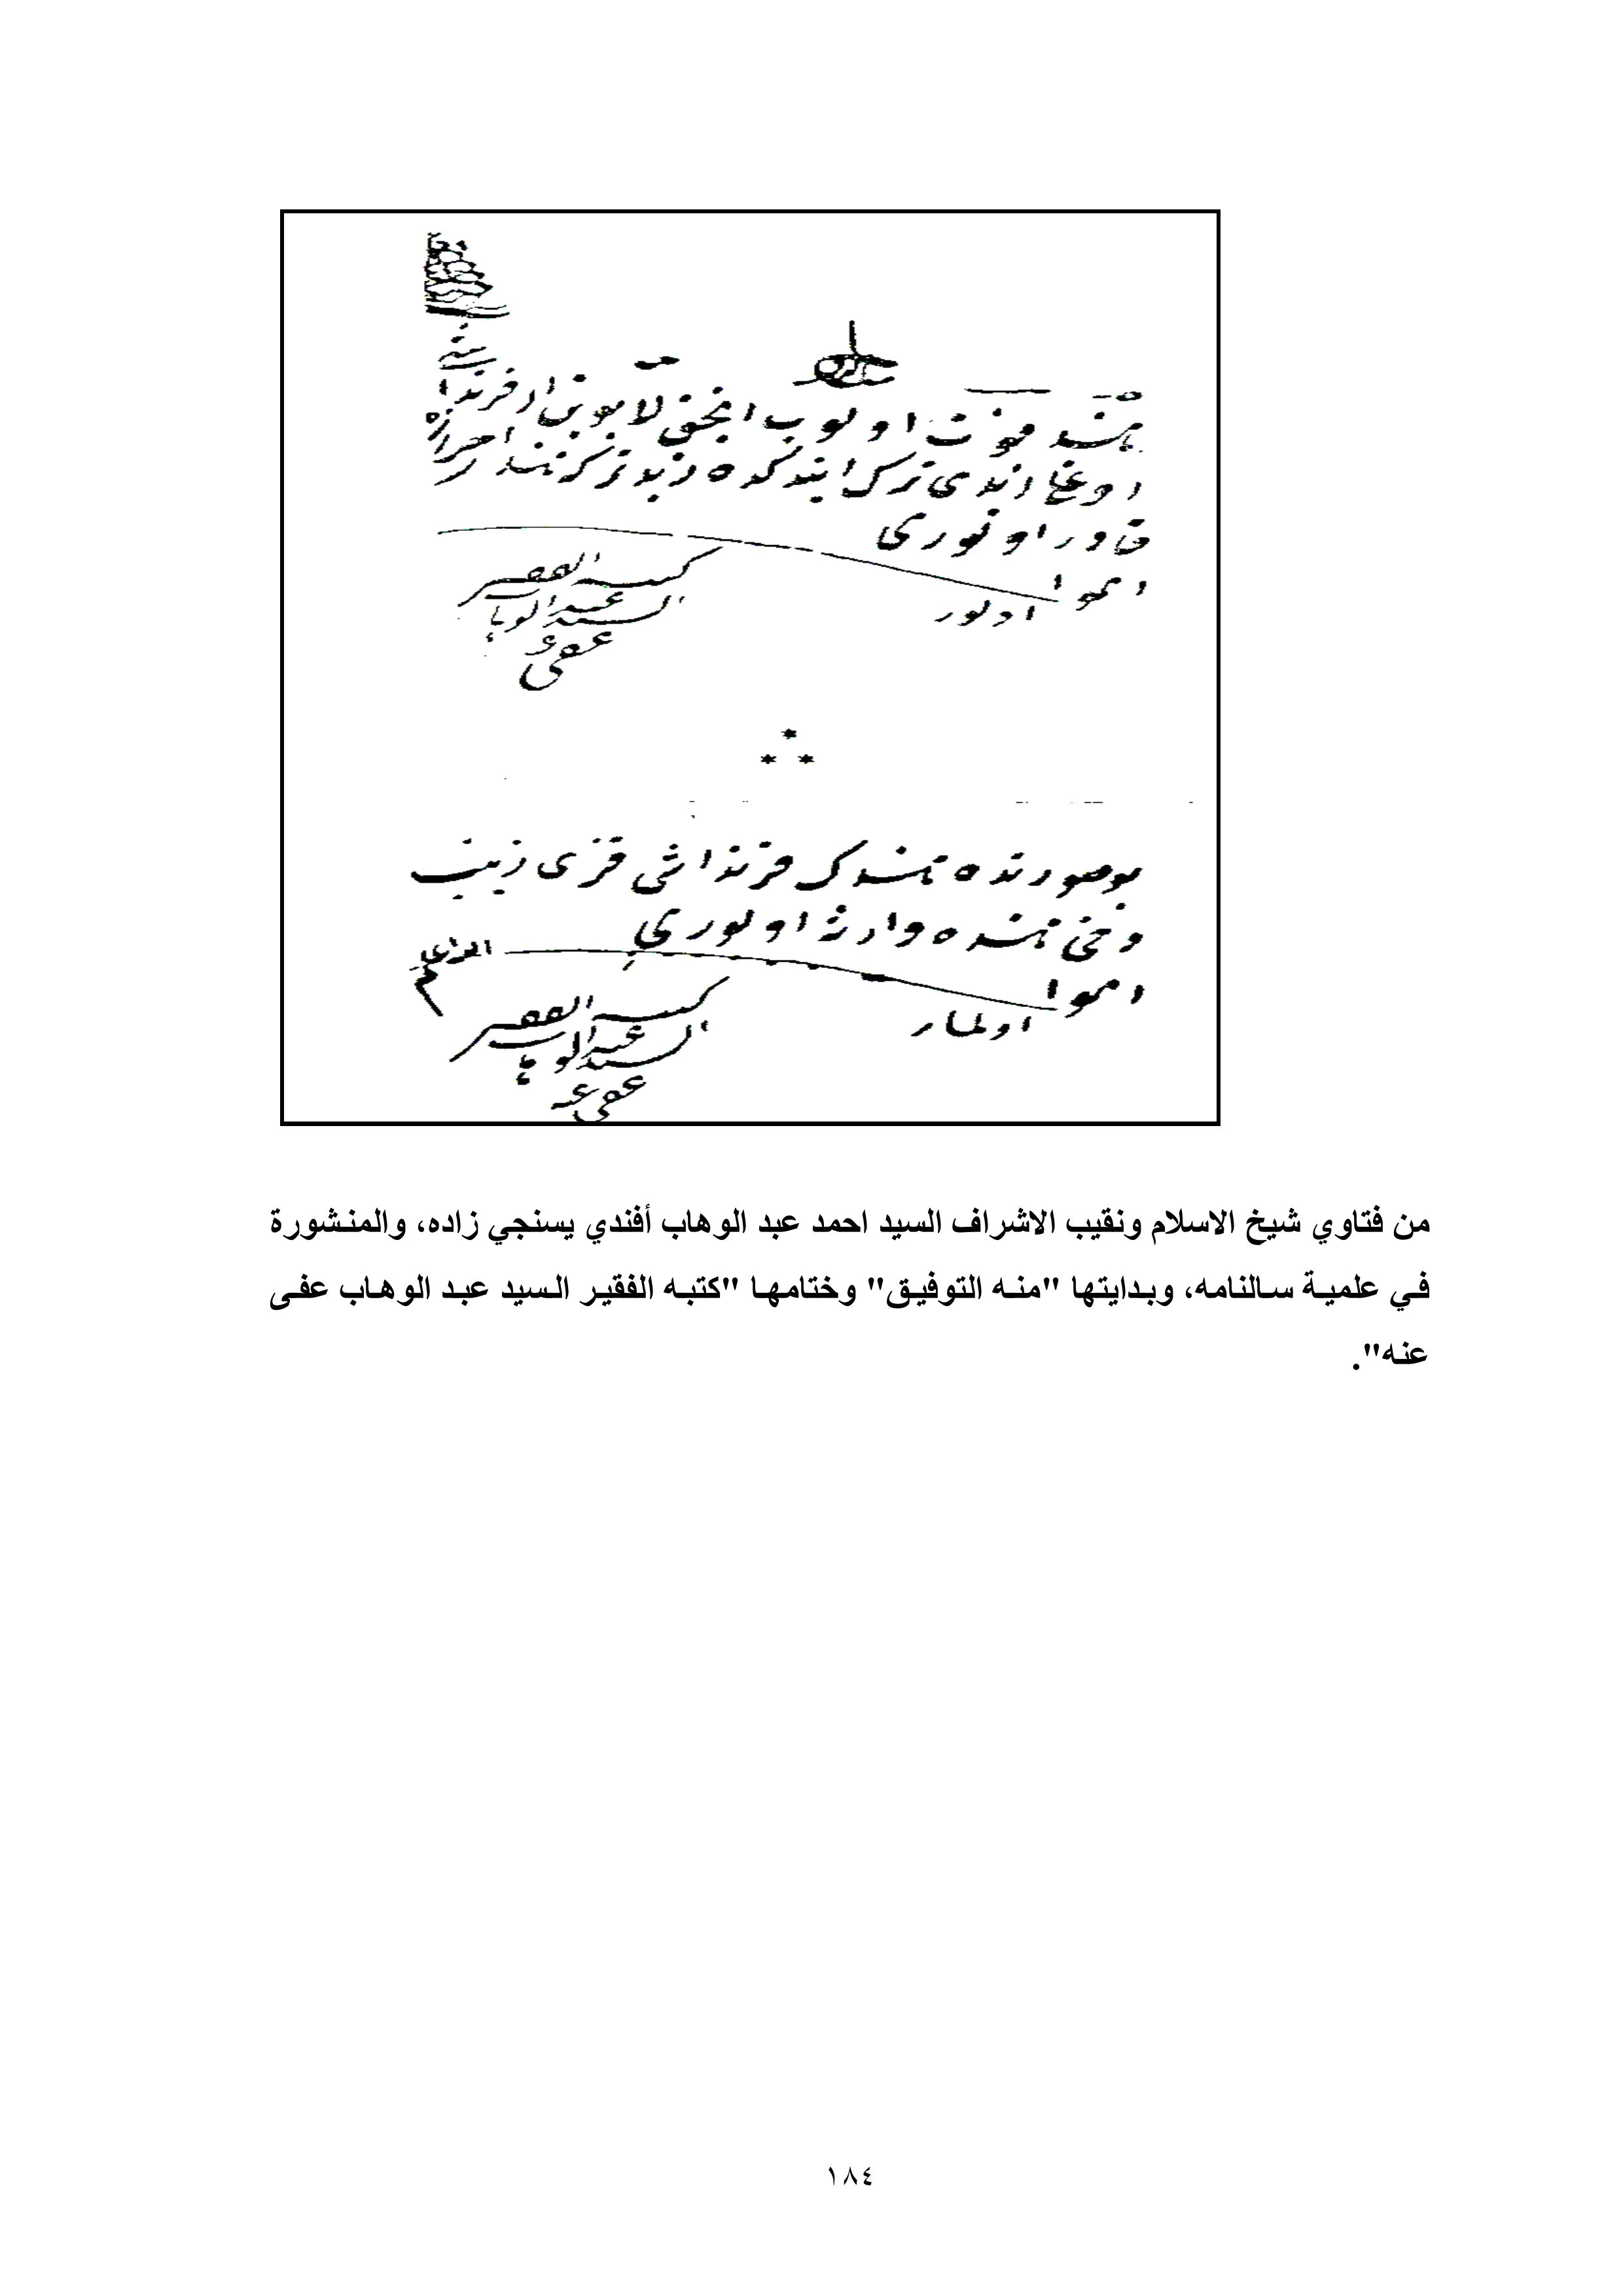 هند فوت اولوب انجق لابوين ار قرنداشی
اوغلندی ترك ايتدكده زيد تركۀ هندی احرازه
قادر اولورمی
الجواب
اولور
كتبه الفقير
السيد عبد الوهاب
عفی عنه
بو صورتده هندك قرنداشی قزی زينب
دخی هنده وارثه اولورمی
الجواب
اولماز
كتبه الفقير
السيد عبد الوهاب
عفی عنه
من فتاوي شيخ الاسلام ونقيب الاشراف السيد احمد عبد الوهاب أفندي يسنجي زاده، والمنشورة
في علمية سالنامه، وبدايتها "منه التوفيق" وختامها "كتبه الفقير السيد عبد الوهاب عفى
عنه".
١٨٤